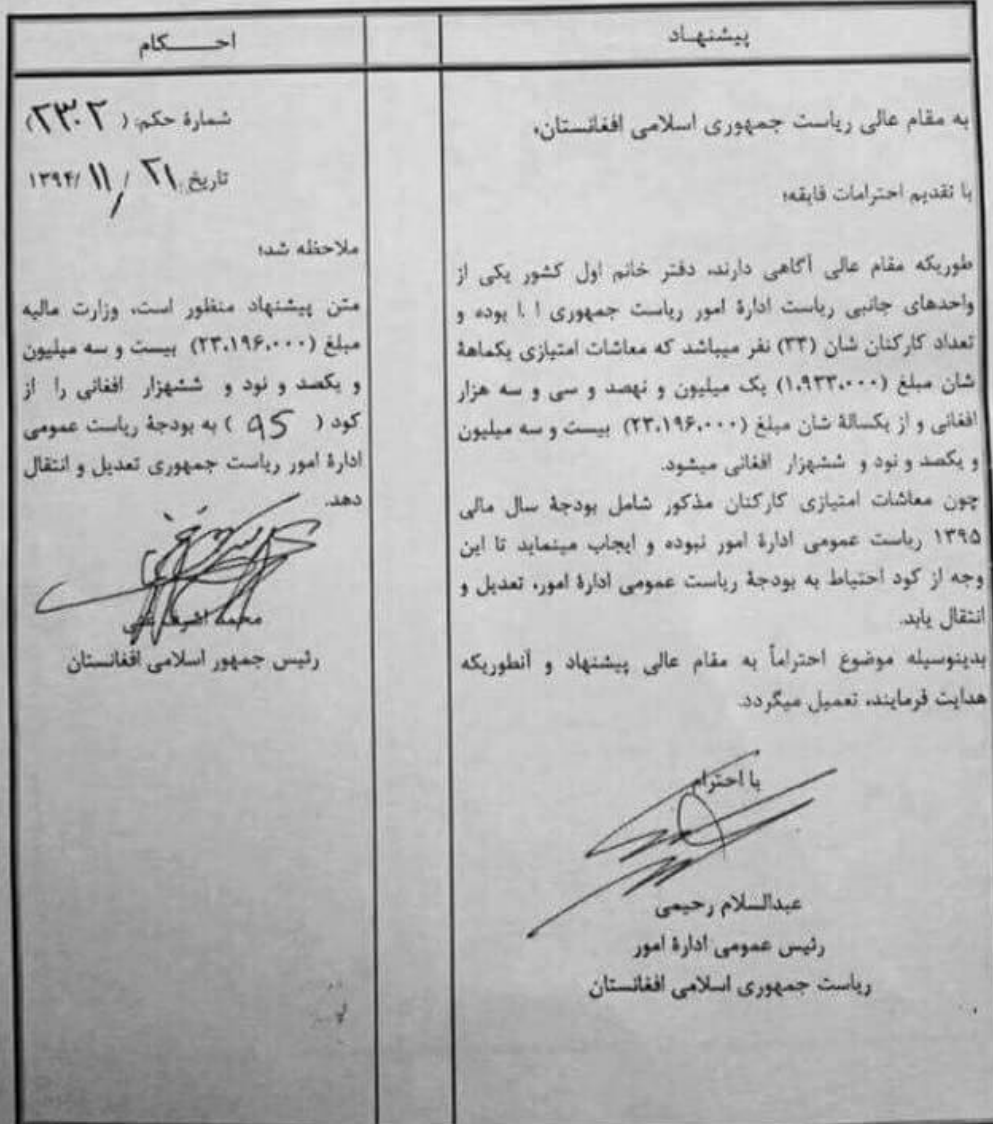 پیشنهـاد
به مقام عالی ریاست جمهوری اسلامی افغانستان،
با تقدیم احترامات فایقه؛
طوریکه مقام عالی آگاهی دارند، دفتر خانم اول کشور یکی از
واحدهای جانبی ریاست ادارۀ امور ریاست جمهوری ا .ا بوده و
تعداد کارکنان شان (۳۳) نفر میباشد که معاشات امتیازی یکماهۀ
شان مبلغ (۱،۹۳۳،۰۰۰) یک میلیون و نهصد و سی و سه هزار
افغانی و از یکسالۀ شان مبلغ (۲۳،۱۹۶،۰۰۰) بیست و سه میلیون
و یکصد و نود و ششهزار افغانی میشود.
چون معاشات امتیازی کارکنان مذکور شامل بودجۀ سال مالی
۱۳۹۵ ریاست عمومی ادارۀ امور نبوده و ایجاب مینماید تا این
وجه از کود احتیاط به بودجۀ ریاست عمومی ادارۀ امور، تعدیل و
انتقال یابد.
بدینوسیله موضوع احتراماً به مقام عالی پیشنهاد و آنطوریکه
هدایت فرمایند، تعمیل میگردد.
با احترام
عبدالسلام رحیمی
رئیس عمومی ادارۀ امور
ریاست جمهوری اسلامی افغانستان
احـــــکام
شمارۀ حکم: ( ۲۳۰۲)
تاریخ ۲۱ / ۱۱ /۱۳۹۴
ملاحظه شد؛
متن پیشنهاد منظور است، وزارت مالیه
مبلغ (۲۳،۱۹۶،۰۰۰) بیست و سه میلیون
و یکصد و نود و ششهزار افغانی را از
کود ( 95 ) به بودجۀ ریاست عمومی
ادارۀ امور ریاست جمهوری تعدیل و انتقال
دهد.
محمد اشرف غنی
رئیس جمهور اسلامی افغانستان